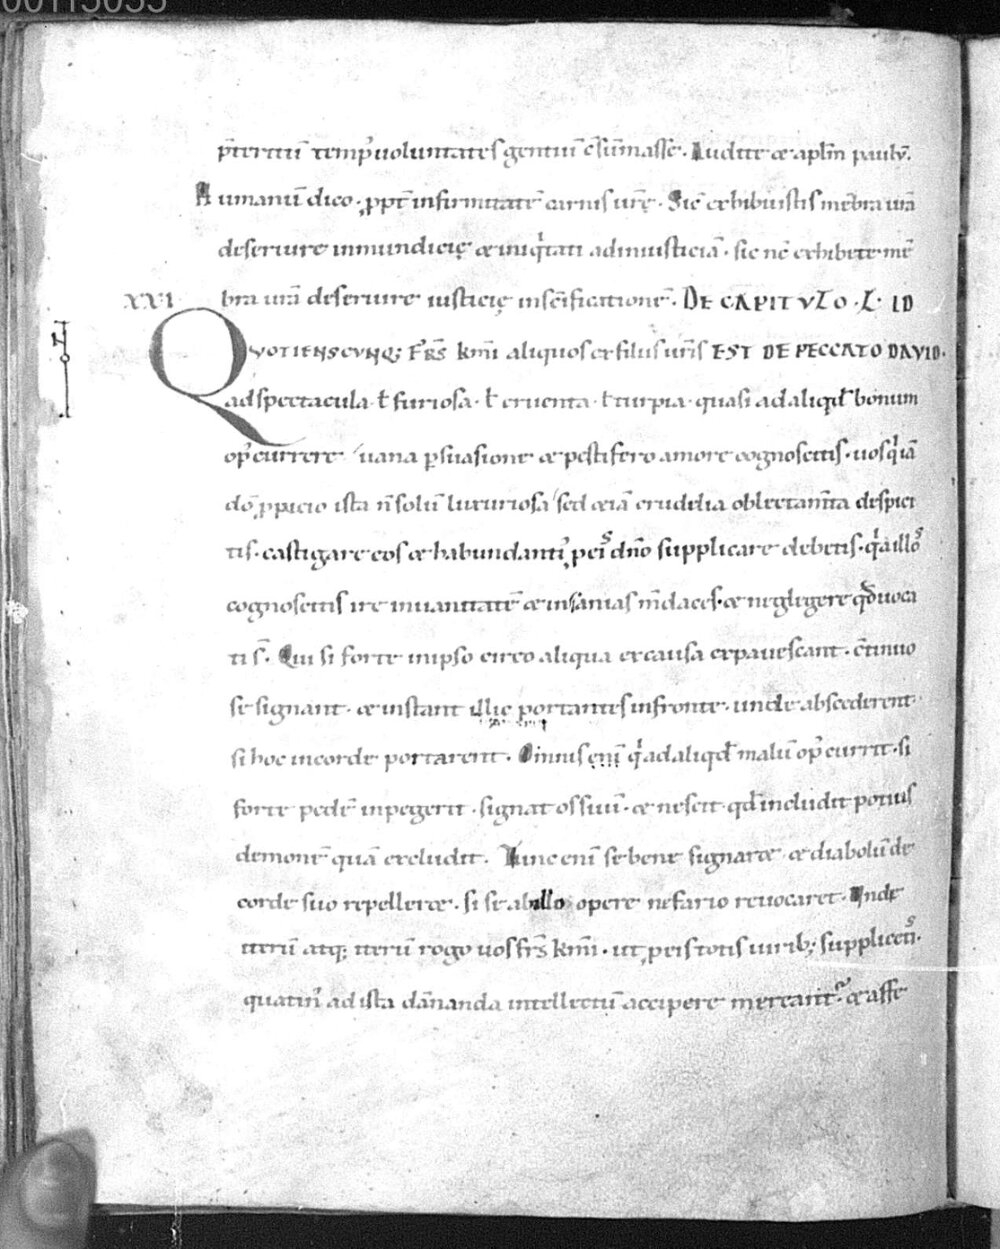 00115035
p̄teritū temp᾽ uoluntates gentiū c̄sūmasse. Audite & aplm̄ paulū.
humanū dico. ꝓpt̄ infirmitatē carnis ur̄ę. Sic̄ exhibuistis mēbra urā
deseruire inmundicię & iniqͥtati ad iniusticiā. sic nc̄ exhibete mē
xxvi bra urā deseruire iusticię in sc̄ificationē. DE CAPITULO. L. ID
QUOTIENSCUNQ; FRS̄ km̄i aliquos ex filiis ur̄is EST DE PECCATO DAVID.
ad spectacula. ł furiosa. ł cruenta. ł turpia. quasi ad aliqđ bonum
op᾽ currere uana ꝑsuasione & pestifero amore cognoscitis. uos qͥ iā
dō ꝓpicio ista n̄ solū luxuriosa sed &iā crudelia oblectam̄ta despici
tis. castigare eos & habundanti᾽ ꝓ eis dn̄o supplicare debetis. qͥa illos
cognoscitis ire in uanitatē & insanias m̄daces. & neglegere qđ uoca
ti s̄. Qui si forte in ipso circo aliqua ex causa expauescant. c̄tinuo
se signant. & instant illic portantes in fronte. unde abscederent.
si hoc in corde portarent. Omnis enī qͥ ad aliqđ malū op᾽ currit. si
forte pedē inpegerit. signat os suū. & nescit. qđ includit potius
demonē quā excludit. Tunc enī se bene signar& & diabolū de
corde suo repeller&. si se ab illo opere nefario reuocaret. Unde
iterū atq; iterū rogo uos frs̄ km̄i. ut ꝓ eis totis uirib; supplicetis.
quatin᾽ ad ista dānanda intellectū accipere mereant᾽. & affe